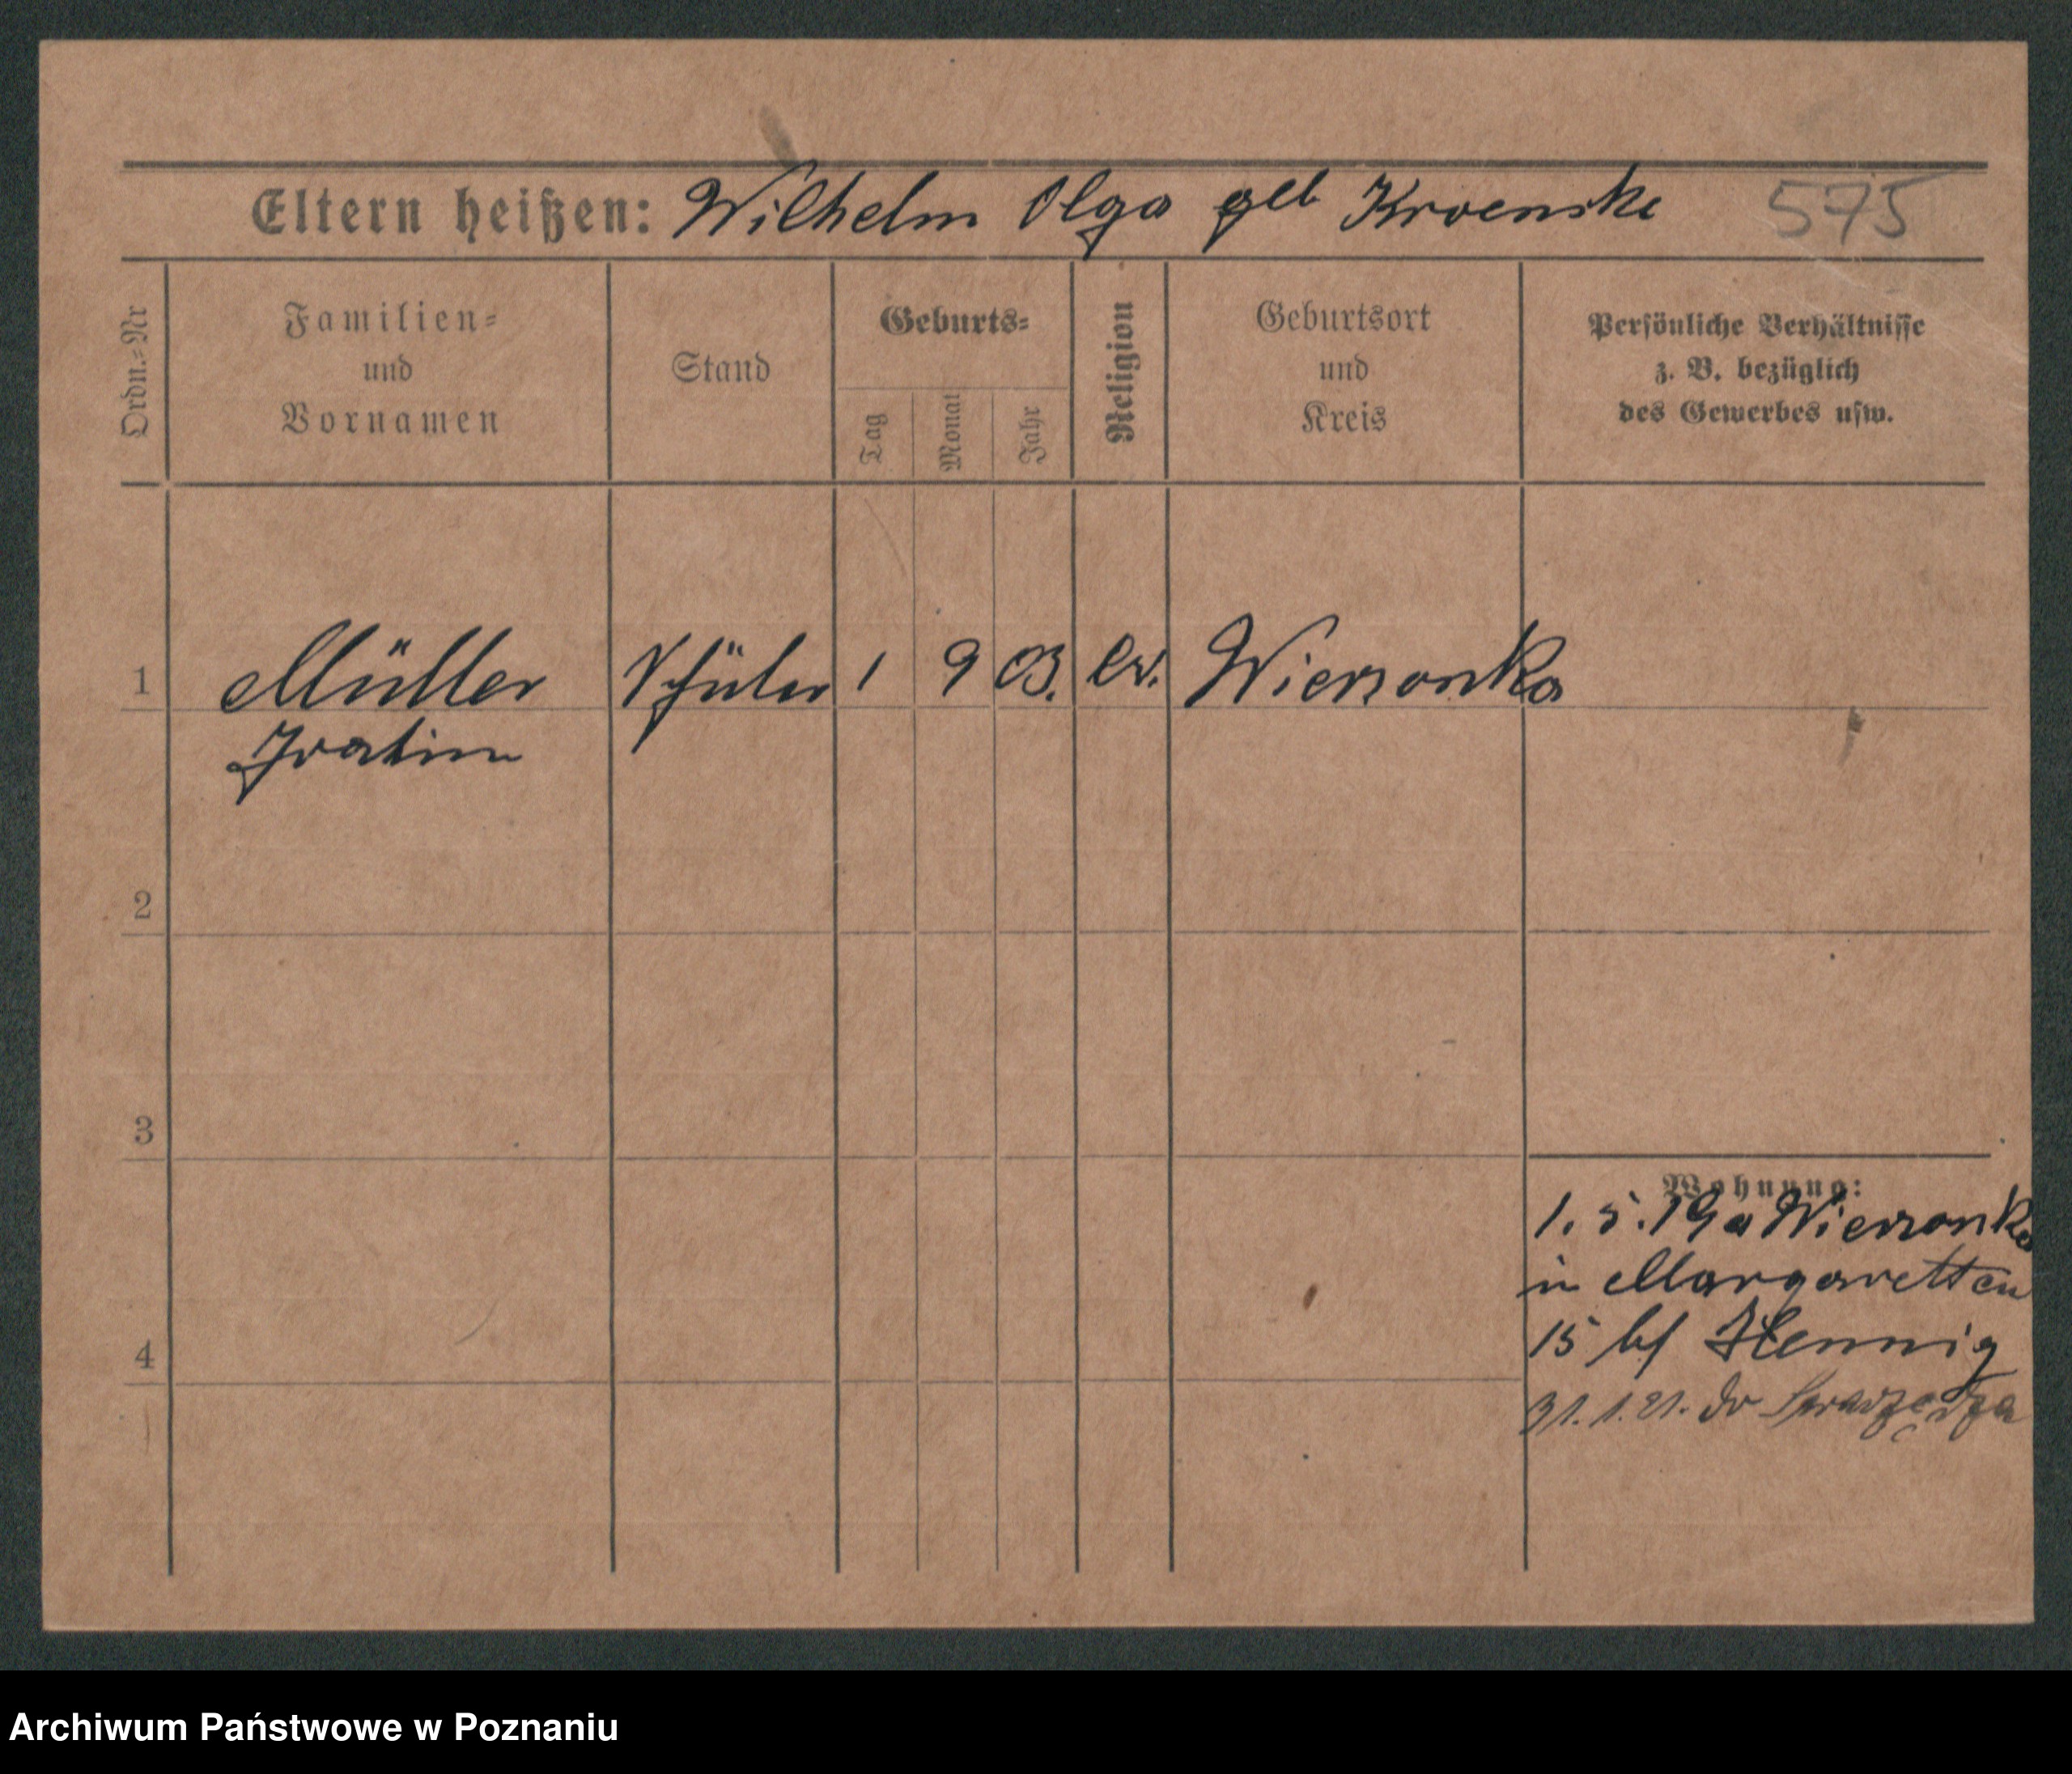 Eltern heißen: Wilhelm Olga geb Kroenske 575
Ordn.=Nr
Familien=
und
Vornamen
Stand
Geburts=
Tag
Monat
Jahr
Religion
Geburtsort
und
Kreis
Persönliche Verhältnisse
z. B. bezüglich
des Gewerbes usw.
1 Müller Schüler 1 9 03. ev. Wierzonka
2
3
4
Wohnung:
1. 5. 19 a Wierzonka
in Margaretten
15 bf Hennig
31. 1. 21. do
Archiwum Państwowe w Poznaniu